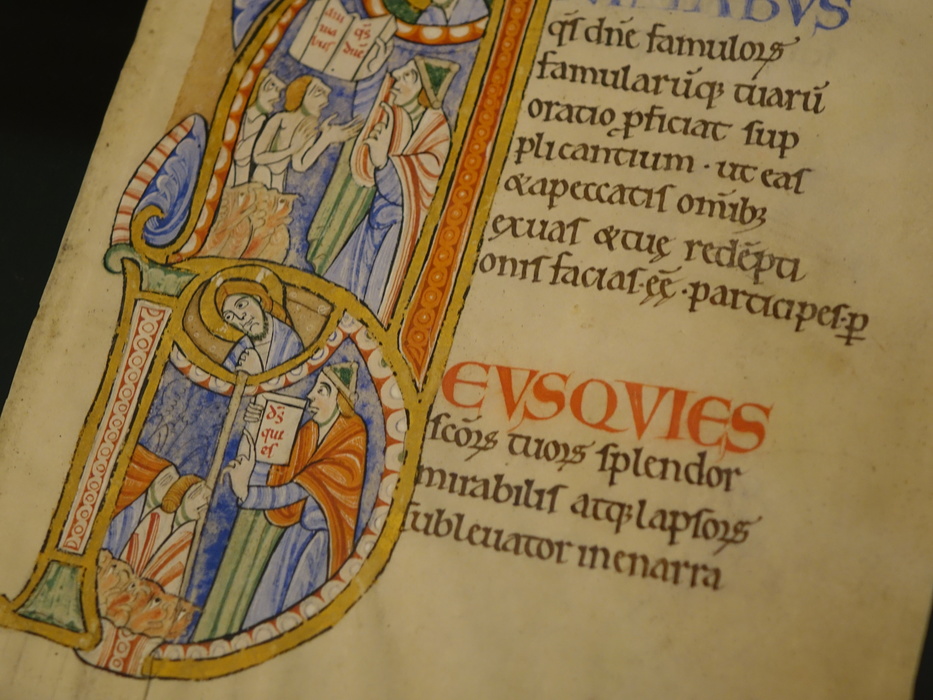 NIMABVS
q̄ſ dn̄e famuloꝝ
famularūq; tuarū
oratio ꝓficiat ſup
plicantium · ut eaſ
&apeccatiſ om̄ib;
exuaſ &tuę redēpti
oniſ faciaſ·ee̅·participeſ·p̲
EVSQVIES
ſcōꝝ tuoꝝ ſplendor
mirabiliſ atq; lapſoꝝ
ſubleuator inenarra
ma
buſ
qs
dne
qui
eſ